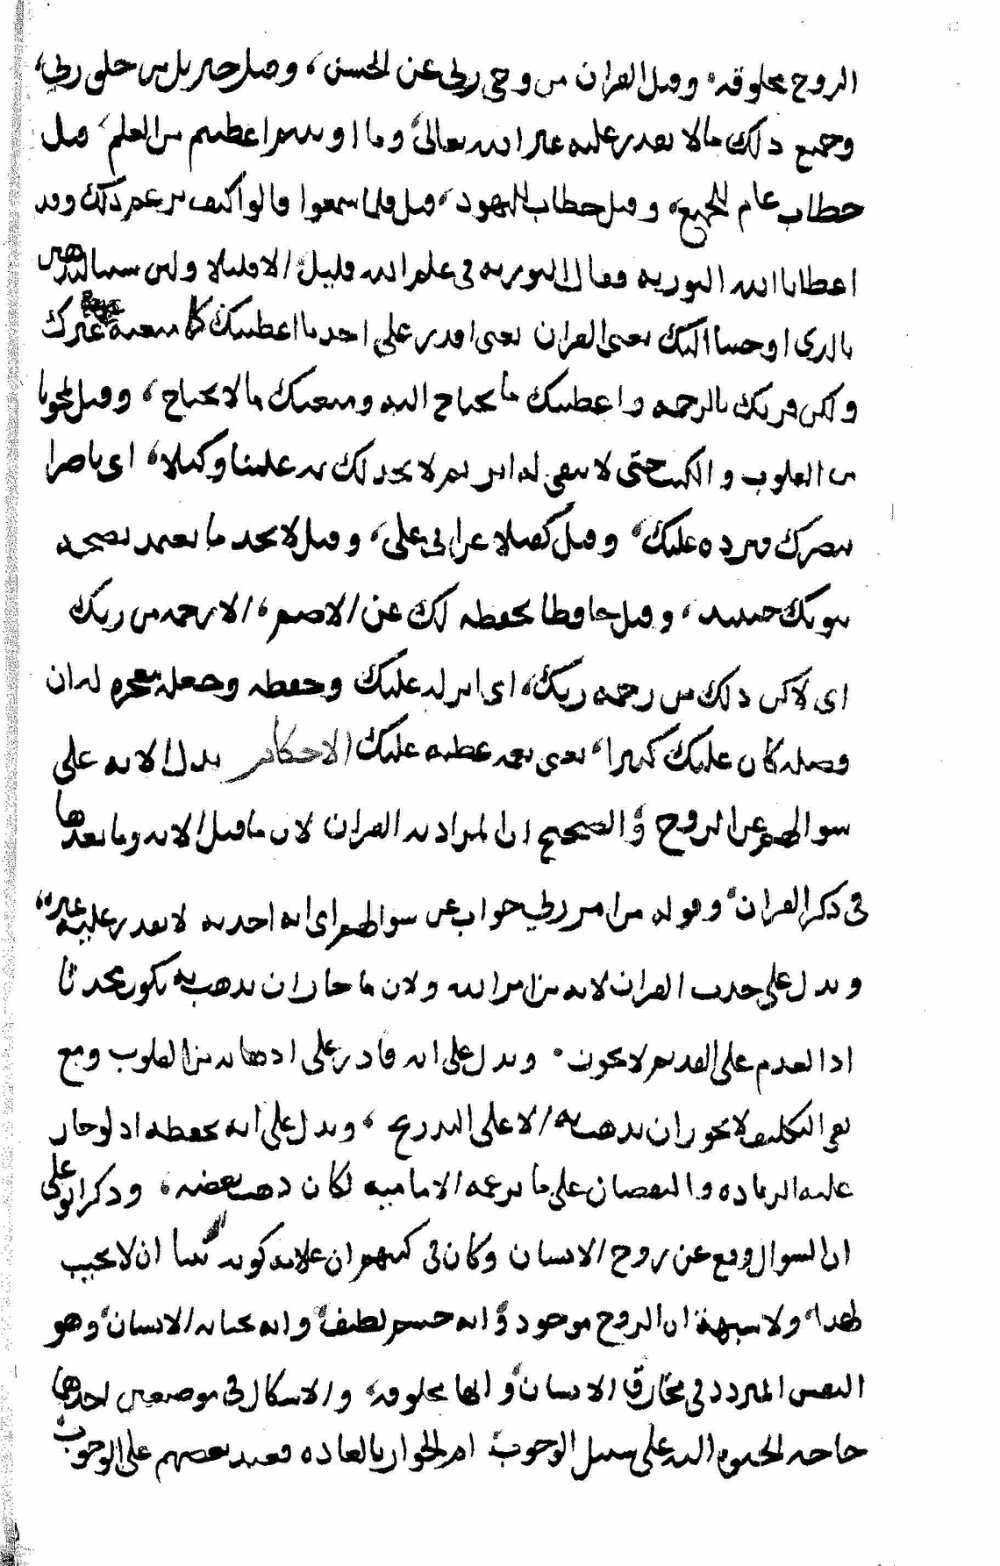 الروح مخلوقه وقيل القران من وحي ربي عن الحسن، وقيل جبريل من خلق ربي،
وجميع ذلك مالا يقدر عليه غير الله تعالى وما اوتيتم اعطيتم من العلم، قيل
خطاب عام للجميع، وقيل خطاب لليهود، قيل فلما سمعوا قالوا كيف تزعم ذلك وقد
اعطانا الله التوريه فقال التوريه في علم الله قليل الا قليلا ولين شينا لنذهبن
بالذي اوحينا اليك يعني القران يعني اقدر على اخذ ما اعطيتك كما منعته غيرك
ولكن قربتك بالرحمه واعطيتك ما تحتاج اليه ومنعتك مالا تحتاج، وقيل لمحونا
من القلوب والكتب حتى لا يبقى له اثر ثم لا تجد لك به علينا وكيلا، اي ناصرا
ينصرك فيرده عليك، وقيل كفيلا عن ابي علي، وقيل لا تجد ما تعتمد
وقيل حافظا يحفظه لك عن الاصم، الا رحمه من ربك
اي لكن ذلك من رحمه ربك، اي انزله عليك وحفظه وجعله معجزه له ان
فضله كان عليك كبيرا، يعني نعمه عظيمه عليك الاحكام يدل الايه على
سوالهم عن الروح والصحيح ان المراد به القران لان ما قبل الايه وما بعدها
في ذكر القران وقوله من امر ربي جواب عن سوالهم اي انه احدثه لا يقدر عليه غيره
ويدل على حدث القران لانه من امر الله ولان ما جاز ان يذهب به يكون محدثا
اذ العدم على القديم لا يجوز. ويدل على انه قادر على اذهابه من القلوب ومع
بقي التكليف لا يجوز ان يذهب به الا على التدريج، ويدل على انه يحفظه اذ لو جاز
عليه الزياده والنقصان على ما تزعمه الاماميه لكان ذهب بعضه، وذكر ابو علي
ان السوال وقع عن روح الانسان وكان في كتبهم ان علامه كونه نبيا ان لا يجيب
لهذا، ولا شبهة ان الروح موجود وانه جسم لطيف وانه يحيا به الانسان وهو
النفس المتردد في مخارق الانسان وانها مخلوقه، والاشكال في موضعين احدهما
حاجه الحيوه اليه على سبيل الوجوب ام الجواز بالعاده فعند بعضهم على الوجوب